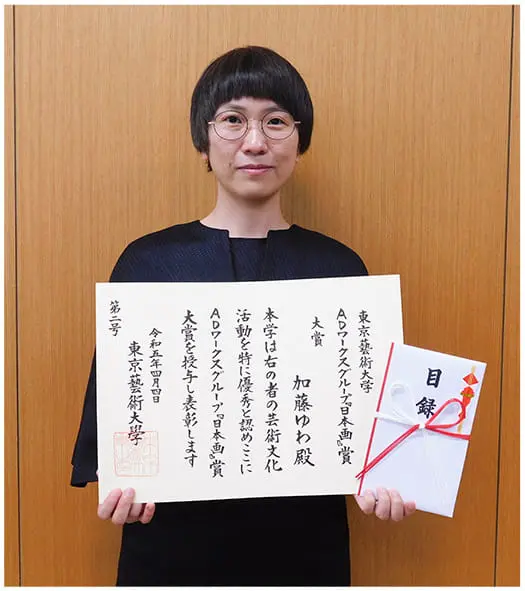 東京藝術大学
ADワークスグループ“日本画”賞
大賞
加藤ゆわ殿
本学は右の者の芸術文化
活動を特に優秀と認めここに
ADワークスグループ“日本画”賞
大賞を授与し表彰します
令和五年四月四日
東京藝術大學
第二号
目録